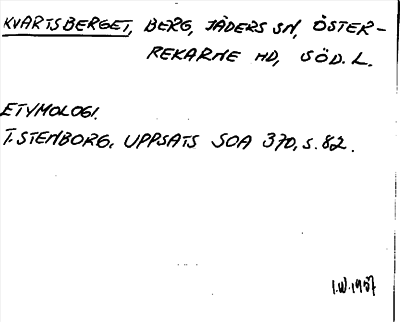 KVARTSBERGET, BERG, JÄDERS SN, ÖSTER-
REKARNE HD, SÖD. L.
ETYMOLOGI.
T. STENBORG, UPPSATS SOA 370, S. 82.
I.W. 1987